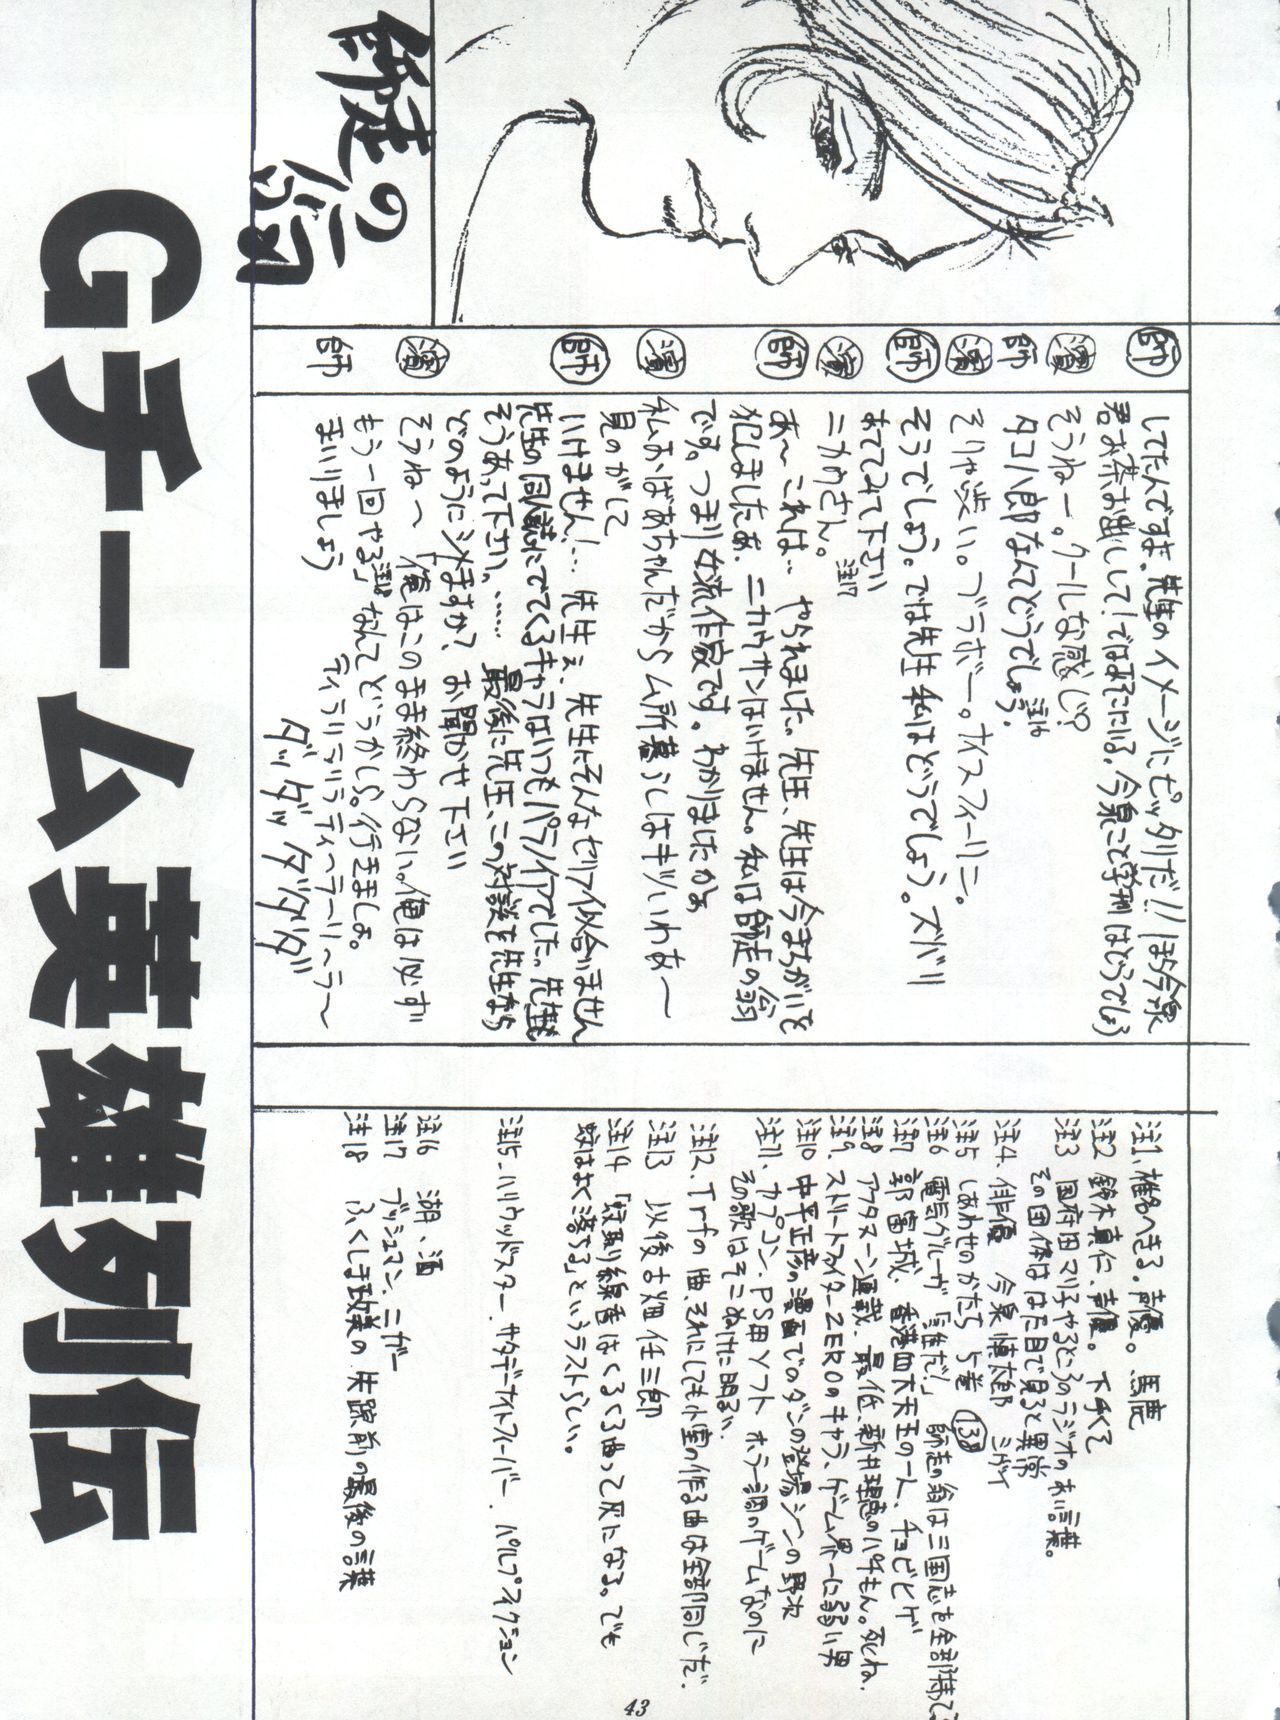 Gチーム英雄列伝
師走の翁
師 してたんですよ。先生のイメージにピッタリだ!!ほら今泉
君お茶お出しして!ではよそにいる、今泉こと学刑はどうでしょう
濱 そうねー。クールな感じ?
師 タコハ郎なんてどうでしょう。注16
濱 そりゃ渋い。ブラボー。ナイスフィーリニ。
師 そうでしょう。では先生私はどうでしょう。ズバリ
あててみて下さい
濱 ニカウさん。注17
師 あ〜これは… やられました。先生、先生は今まちがいを
犯しましたよ。ニカウサンはいけません。私は師走の翁
です。つまり女流作家です。わかりましたかよ
濱 私おばあちゃんだからム所暮らしはキツいわあ〜
見のがして
師 いけません!… 先生ェ、先生にそんなセリフ似合いません
先生の同人誌にでてくるキャラはいつもパラノイアでした。先生も
そうあって下さい、…… 最後に先生、この対談を先生なら
どのようにシメますか? お聞かせ下さい
濱 そうね〜 「俺はこのまま終わらない。俺は必ず
もう一回やる」注18なんてどうかしら。行きましょ。
師 まいりましょう
ティラリラリラティ〜ラーリ〜ラ〜
ダッダッダダダダ
注1、椎名へきる。声優。馬鹿
注2 鈴木真仁、声優。下手くて
注3 国府田マリ子やるとこのラジオのあい言葉。
その団体ははた目で見ると異常
注4、俳優 今泉慎太郎 ミゲイ
注5 しあわせのかたち 5巻 138
注6 電気グルーヴ「誰だ!」 師走の翁は三国志を全部持って
注7 郭富城、香港四大天王の一人、チョビヒゲ
注8 アフタヌーン連載、最低、新井理恵のパチもん。死ね。
注9、ストリートファイターZEROのキャラ、ゲーム界一に弱い男
注10 中平正彦の漫画でのダンの登場シーンの野次
注11、カプコン、PS用ソフト ホラー調のゲームなのに
その歌はそこぬけに明るい
注12、Trfの曲、それにしても小室の作る曲は全部同じだ。
注13 以後古畑任三郎
注14 「蚊取り線香はくるくる曲って灰になる。でも
蚊はよく落ちる」というラストらしい。
注15、ハリウッドスター、サタデーナイトフィーバー、パルプフィクション
注16 湖、酒
注17 ブッシュマン、ニガー
注18 ふくしま政美の失踪前の最後の言葉
43